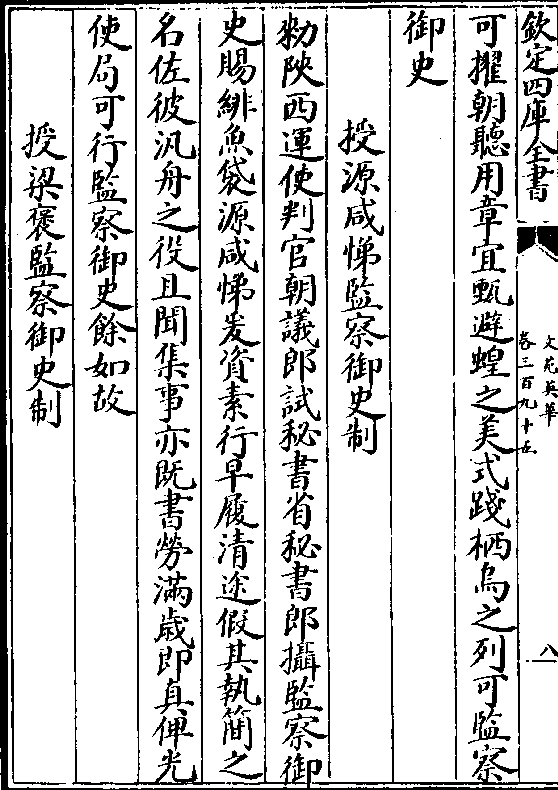 欽定四庫全書
文苑英華
卷三百九十五
八
可擢朝聽用章宜甄避蝗之美式踐栖烏之列可監察
御史
授源咸悌監察御史制
勑陝西運使判官朝議郎試秘書省秘書郎攝監察御
史賜緋魚袋源咸悌爰資素行早履清途假其執簡之
名佐彼汎舟之役且聞集事亦既書勞滿歲即真俾光
使局可行監察御史餘如故
授梁褒監察御史制